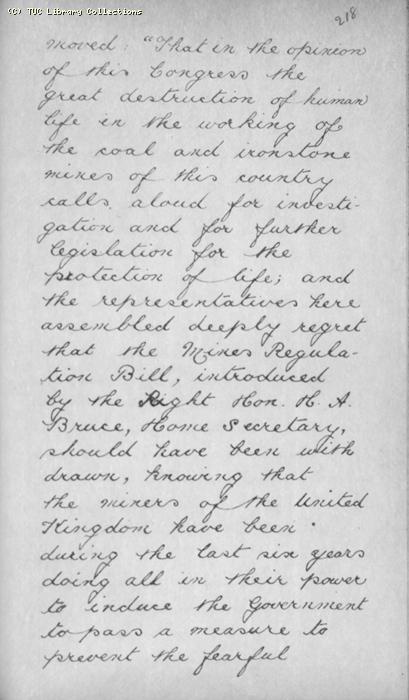 (C) TUC Library Collections
218
moved: "That in the opinion
of this Congress the
great destruction of human
life in the working of
the coal and ironstone
mines of this country
calls aloud for investi-
gation and for further
legislation for the
protection of life; and
the representatives here
assembled deeply regret
that the Mines Regula-
tion Bill, introduced
by the Right Hon. H. A.
Bruce, Home Secretary,
should have been with
drawn, knowing that
the miners of the United
Kingdom have been
during the last six years
doing all in their power
to induce the Government
to pass a measure to
prevent the fearful